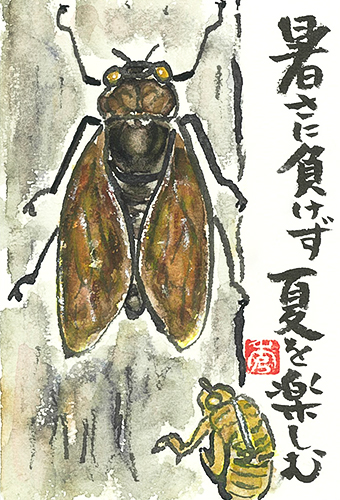 暑さに負けず
夏を楽しむ